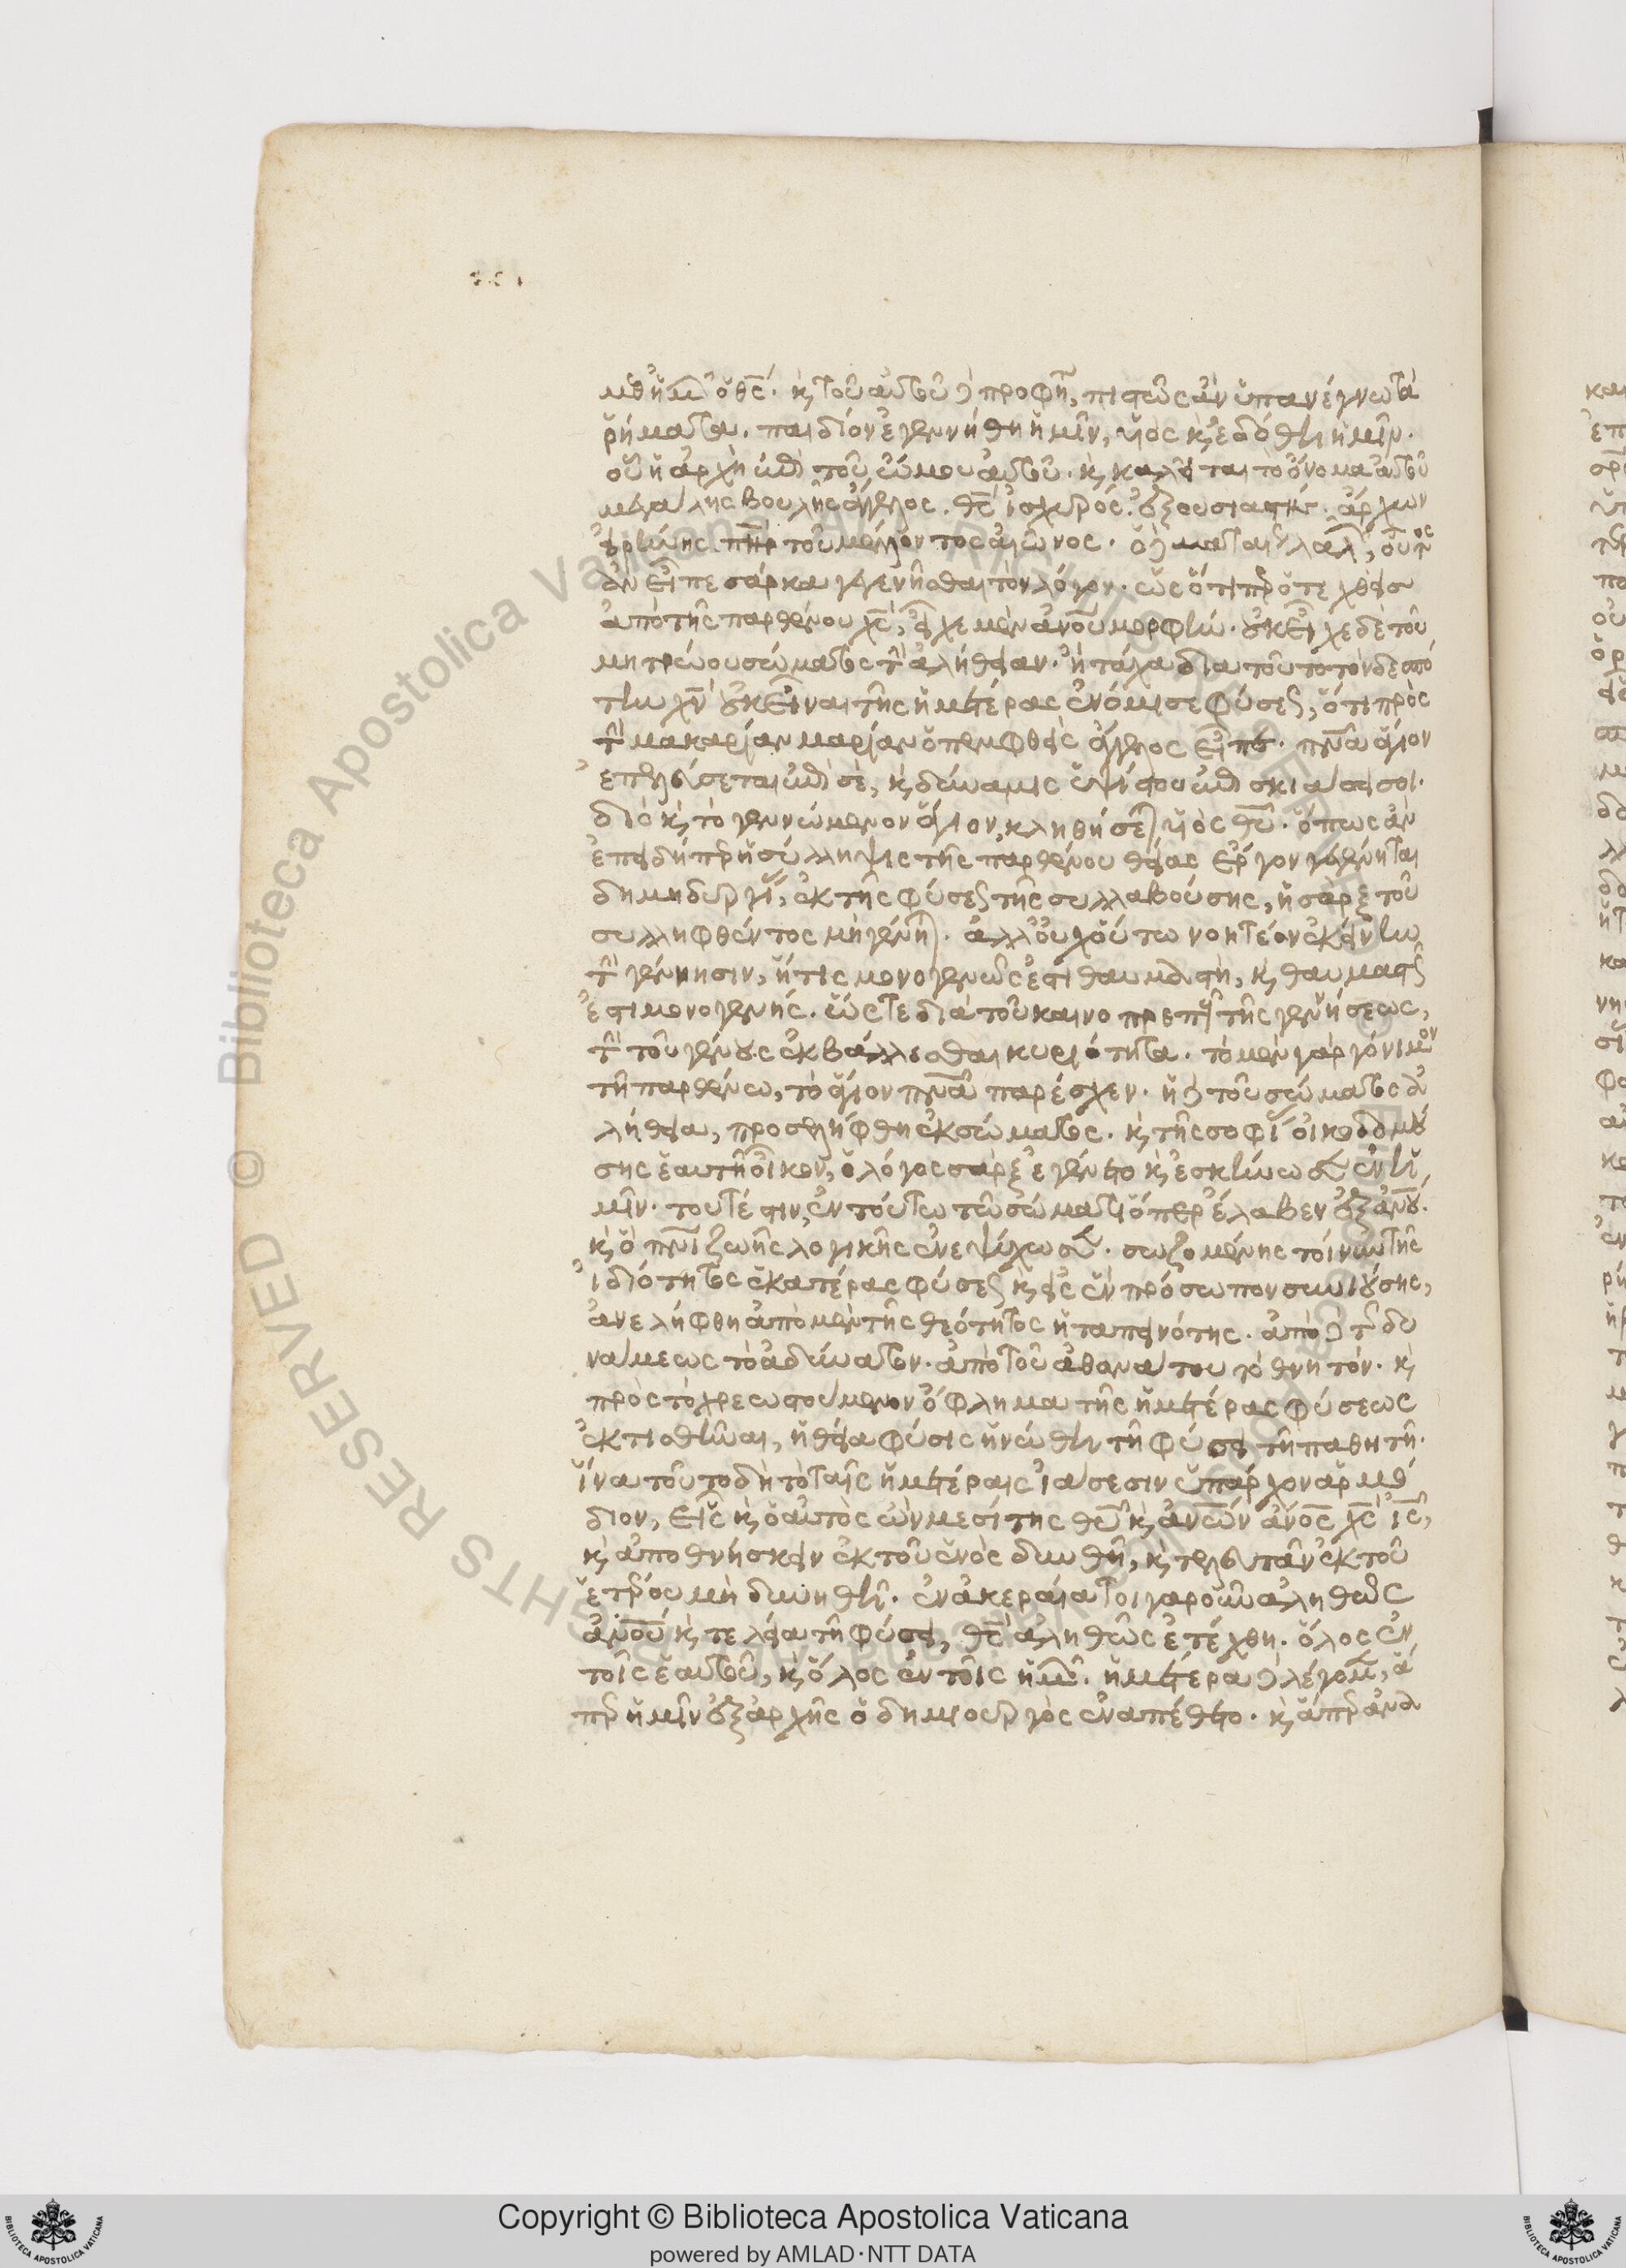 μεθ ἡμῶν ὁ θς. κ τοῦ αὐτοῦ δὲ προφήτου, πιστῶς ἂν ὑπανέγνω τὰ
ῥήματα. παιδίον ἐγεννήθη ἡμῖν, υἱὸς κ ἐδόθη ἡμῖν.
οὗ ἡ ἀρχὴ ἐπὶ τοῦ ὤμου αὐτοῦ. κ καλεῖται τὸ ὄνομα αὐτοῦ
μεγάλης βουλῆς ἄγγελος. θς ἰσχυρός. ἐξουσιαστής. ἄρχων
εἰρήνης. πηρ τοῦ μέλλοντος αἰῶνος.
ἂν εἶπε σάρκα γεγενῆσθαι τὸν λόγον. ὡς ὅτιπερ ὁ τεχθεὶς
ἀπὸ τῆς παρθένου χς, εἶχε μὲν ἀνοῦ μορφήν. οὐκ εἶχε δὲ τοῦ
μητρώου σώματος τὴν ἀλήθειαν. ἢ τάχα διατοῦτο τὸν δεσπό
την χν οὐκ εἶναι τῆς ἡμετέρας ἐνόμισε φύσεως, ὅτι πρὸς
τὴν μακαρίαν μαρίαν ὁ πεμφθεὶς ἄγγελος εἶπε. πνα ἅγιον
ἐπελεύσεται ἐπὶ σὲ, κ δύναμις ὑψίστου ἐπισκιάσει σοι.
διὸ κ τὸ γεννώμενον ἅγιον, κληθήσεται υἱὸς θυ. ὅπως ἂν
ἐπειδήπερ ἡ σύλληψις τῆς παρθένου θείας ἔργον γεγένηται
δημιουργίας, ἐκ τῆς φύσεως τῆς συλλαβούσης, ἡ σὰρξ τοῦ
συλληφθέντος μὴ γένηται. ἀλλ οὐχ οὕτω νοητέον ἐκείνην
τὴν γέννησιν, ἥτις μονογενῶς ἐστι θαυμαστὴ, κ θαυμαστῶς
ἐστι μονογενής. ὥστε διὰ τοῦ καινοπρεποῦς τῆς γεννήσεως,
τὴν τοῦ γένους ἐκβάλλεσθαι κυριότητα. τὸ μὲν γὰρ γόνιμον
τῇ παρθένω, τὸ ἅγιον πνα παρέσχεν. ἡ δὲ τοῦ σώματος ἀ
λήθεια, προσελήφθη ἐκ σώματος. κ τῆς σοφίας οἰκοδομού
σης ἑαυτῇ οἶκον, ὁ λόγος σὰρξ ἐγένετο κ ἐσκήνωσεν ἐν ἡ
μῖν. τουτέστιν, ἐν τούτω τῶ σώματι ὅπερ ἔλαβεν ἐξ ἀνου.
κ ὁ πνι ζωῆς λογικῆς ἐνεψύχωσε. σωζομένης τοίνυν τῆς
ἰδιότητος ἑκατέρας φύσεως κ εἰς ἓν πρόσωπον συνιούσης,
ἀνελήφθη ἀπὸ μὲν τῆς θεότητος ἡ ταπεινότης. ἀπὸ δὲ τῆς δυ
νάμεως τὸ ἀδύνατον. ἀπὸ τοῦ ἀθανάτου τὸ θνητόν. κ
πρὸς τὸ χρεωστούμενον ὄφλημα τῆς ἡμετέρας φύσεως
ἐκτισθῆναι, ἡ θεία φύσις ἡνώθη τῇ φύσει τῇ παθητῇ.
ἵνα τοῦτο δὴ τὸ ταῖς ἡμετέραις ἰάσεσιν ὑπάρχον ἁρμό
διον, εἷς κ ὁ αὐτὸς ὢν μεσίτης θυ κ ἀνων ἄνος χς ις,
κ ἀποθνήσκειν ἐκ τοῦ ἑνὸς δυνηθῇ, κ τελευτᾶν ἐκ τοῦ
ἑτέρου μὴ δυνηθῇ. ἐν ἀκεραία τοιγαροῦν ἀληθοῦς
ἀνου κ τελεία τῇ φύσει, θς ἀληθῶς ἐτέχθη. ὅλος ἐν
τοῖς ἑαυτοῦ, κ ὅλος ἐν τοῖς ἡμῶν. ἡμέτερα δὲ λέγομεν, ἅ
περ ἡμῖν ἐξαρχῆς ὁ δημιουργὸς ἐναπέθετο. κ ἅπερ ἀνα